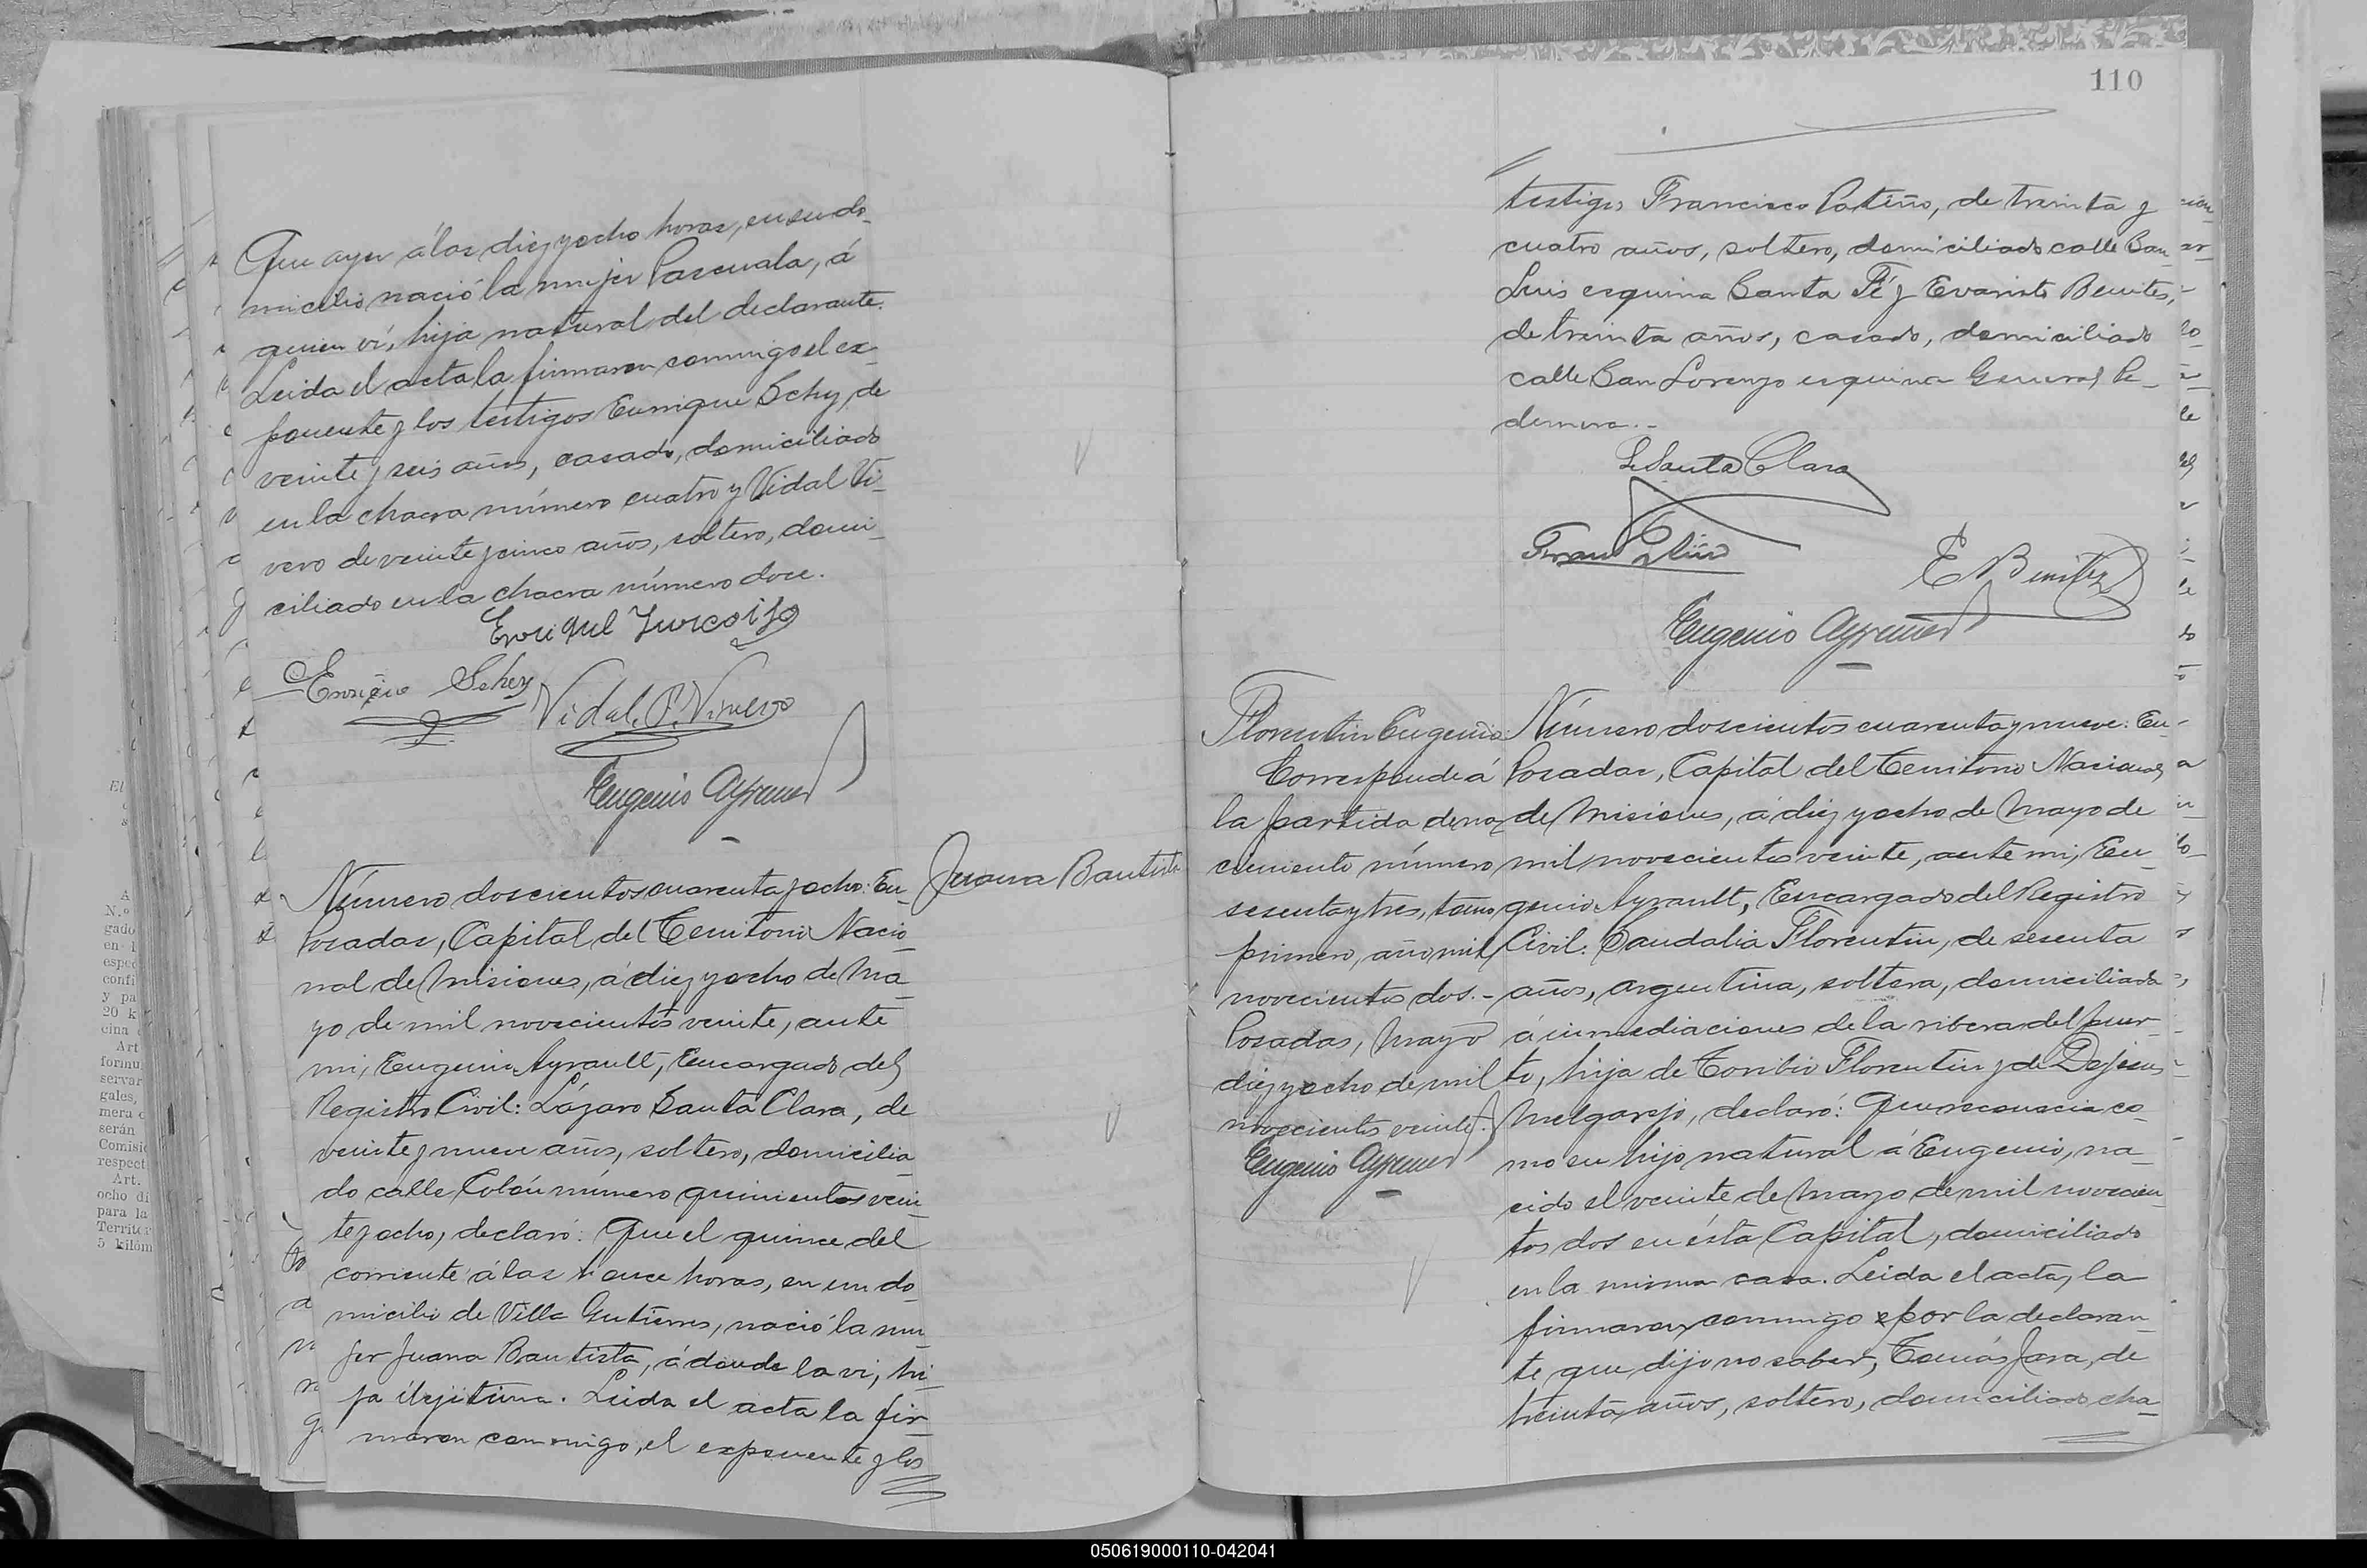 Que ayer á las diez y ocho horas, en su do-
micilio nació la mujer Pascuala, á
quien ví, hija natural del declarante.
Leida el acta la firmaron conmigo el ex-
ponente y los testigos Enrique Schy, de
veinte y seis años, casado, domiciliado
en la chacra número cuatro y Vidal Vi-
vero de veinte y cinco años, soltero, domi-
ciliado en la chacra número doce.
Vidal
Eugenio Ayrault
Número doscientos cuarenta y ocho: En
Juana Bautista
Posadas, Capital del Territorio Nacio-
nal de Misiones, á diez y ocho de Ma-
yo de mil novecientos veinte, ante
mi, Eugenio Ayrault, Encargado del
Registro Civil: Lázaro Santa Clara, de
veinte y nueve años, soltero, domicilia-
do calle Colón numero quinientos vein-
te y ocho, declaró: Que el quince del
corriente á las once horas, en un do-
micilio de Villa Gutierres, nació la mu-
jer Juana Bautista, á donde la vi, hi-
ja ilejitima. Leida el acta la fir-
maron conmigo, el exponente y los
110
testigos Francisco Patiño, de treinta y
cuatro años, soltero, domiciliado calle San
Luis esquina Santa Fé y Evaristo Benites,
de treinta años, casado, domiciliado
calle San Lorenzo esquina General Pe-
dernera.-
L Santa Clara
E Benitez
Eugenio Ayrault
Florentin Eugenio
Corresponde á
la partida de na-
cimiento número
sesenta y tres, tomo
primero, año mil
novecientos dos.-
Posadas, Mayo
diez y ocho de mil
novecientos veinte.
Eugenio Ayrault
Número doscientos cuarenta y nueve: En
Posadas, Capital del Territorio Nacional
de Misiones, á diez y ocho de Mayo de
mil novecientos veinte, ante mi, Eu-
genio Ayrault, Encargado del Registro
Civil: Sandalia Florentin, de sesenta
años, argentina, soltera, domiciliada
á inmediaciones de la ribera del puer-
to, hija de Toribio Florentin y de Dejesus
Melgarejo, declaró: Que reconocia co-
mo su hijo natural á Eugenio, na-
cido el veinte de Mayo de mil novecien-
tos dos en ésta Capital, domiciliado
en la misma casa. Leida el acta, la
firmaron conmigo por la declaran-
te que dijo no saber, Tomás Jara, de
treinta años, soltero, domiciliado cha-
050619000110-042041